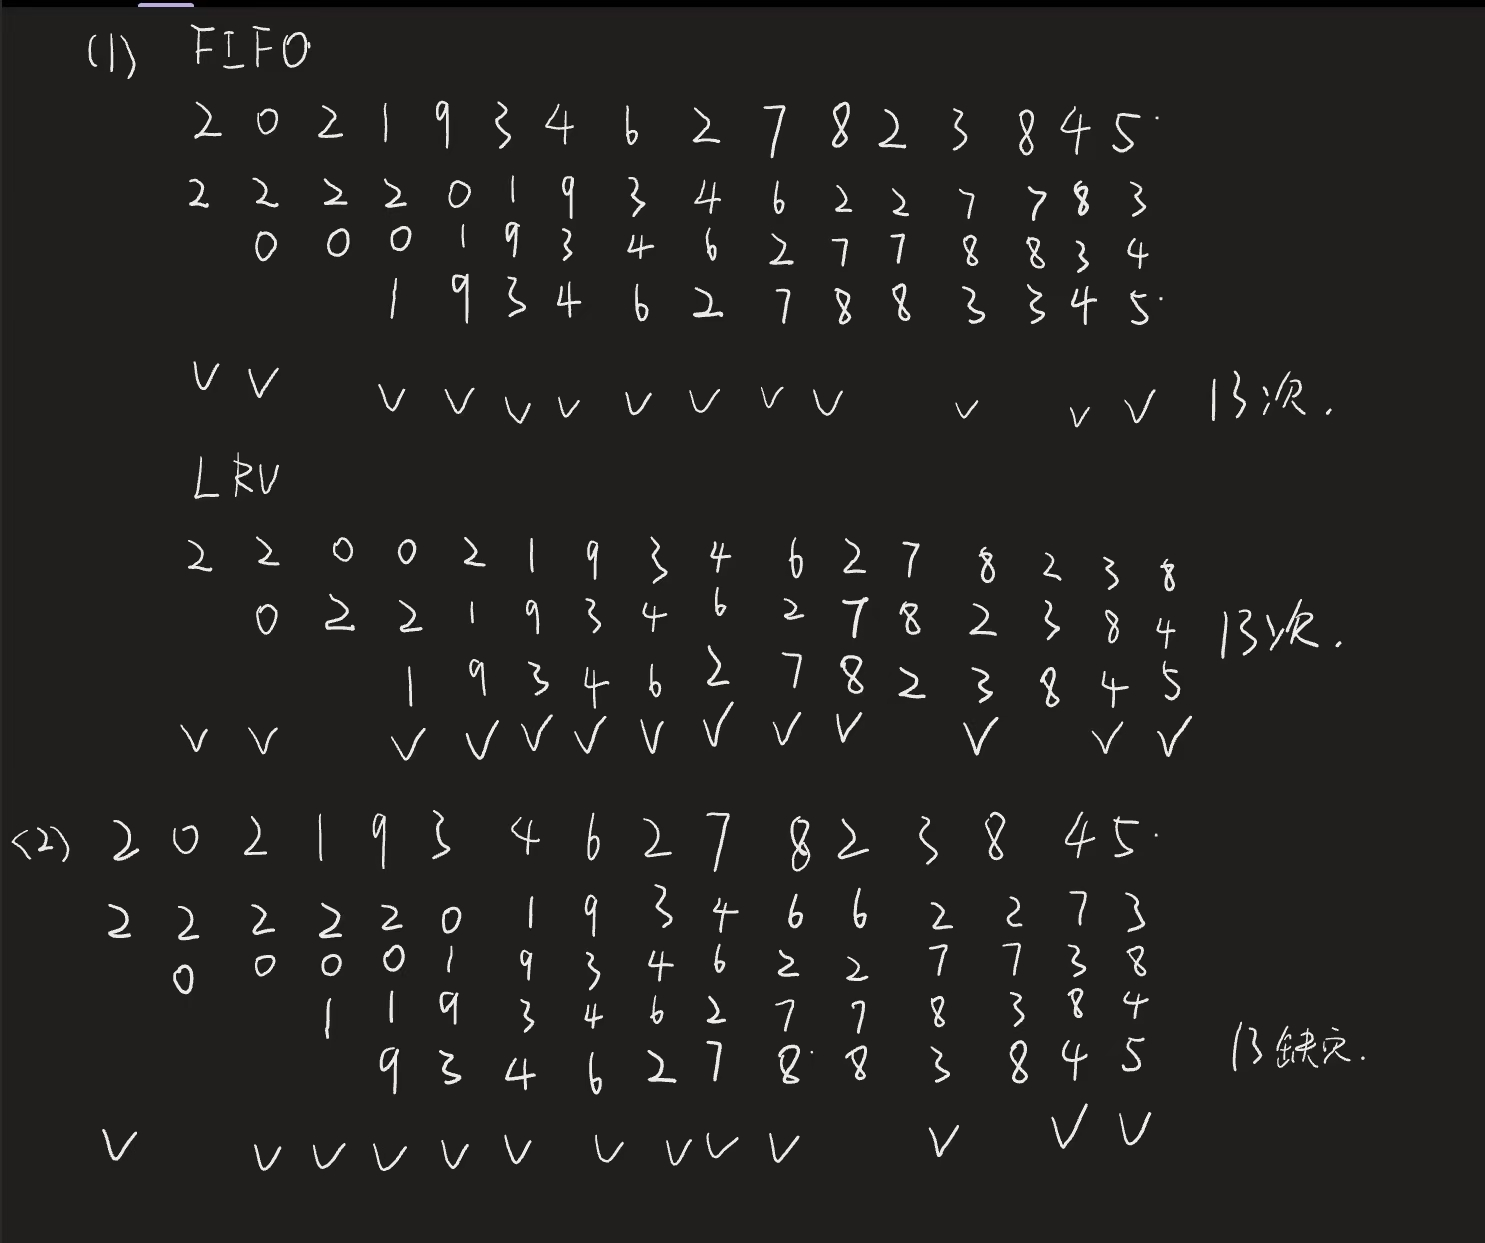 (1) FIFO
2 0 2 1 9 3 4 6 2 7 8 2 3 8 4 5.
2 2 2 2 0 1 9 3 4 6 2 2 7 7 8 3
0 0 0 1 9 3 4 6 2 7 7 8 8 3 4
1 9 3 4 6 2 7 8 8 3 3 4 5.
√ √ √ √ √ √ √ √ √ √ √ √ √ 13次.
LRU
2 2 0 0 2 1 9 3 4 6 2 7 8 2 3 8
0 2 2 1 9 3 4 6 2 7 8 2 3 8 4 13次.
1 9 3 4 6 2 7 8 2 3 8 4 5
√ √ √ √ √ √ √ √ √ √ √ √ √
(2) 2 0 2 1 9 3 4 6 2 7 8 2 3 8 4 5.
2 2 2 2 2 0 1 9 3 4 6 6 2 2 7 3
0 0 0 0 1 9 3 4 6 2 2 7 7 3 8
1 1 9 3 4 6 2 7 7 8 3 8 4
9 3 4 6 2 7 8 8 3 8 4 5 13缺页.
√ √ √ √ √ √ √ √ √ √ √ √ √